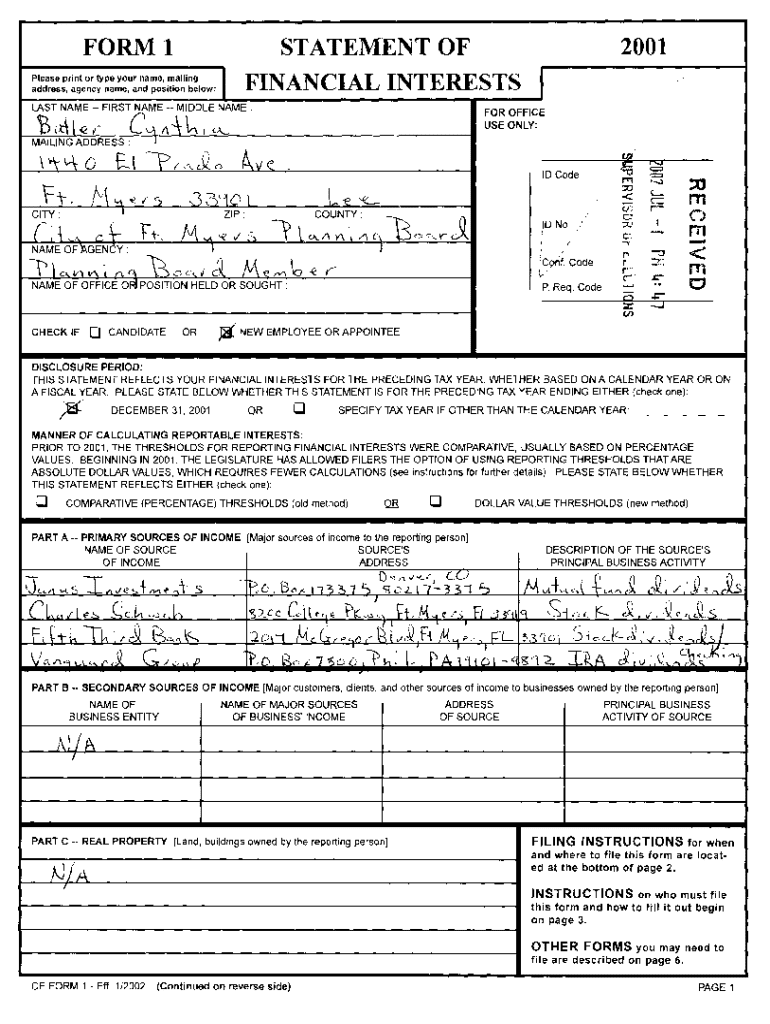 FORM 1
STATEMENT OF
FINANCIAL INTERESTS
2001
Please print or type your name, mailing
address, agency name, and position below:
LAST NAME -- FIRST NAME -- MIDDLE NAME :
Butler Cynthia
MAILING ADDRESS :
1440 El Prado Ave.
Ft. Myers 33901 Lee
CITY : ZIP : COUNTY :
City of Ft. Myers Planning Board
NAME OF AGENCY :
Planning Board Member
NAME OF OFFICE OR POSITION HELD OR SOUGHT :
CHECK IF CANDIDATE OR NEW EMPLOYEE OR APPOINTEE
FOR OFFICE
USE ONLY:
ID Code
ID No
Conf. Code
P. Req. Code
RECEIVED
2002 JUL -1 PM 4:47
SUPERVISOR OF ELECTIONS
DISCLOSURE PERIOD:
THIS STATEMENT REFLECTS YOUR FINANCIAL INTERESTS FOR THE PRECEDING TAX YEAR, WHETHER BASED ON A CALENDAR YEAR OR ON
A FISCAL YEAR. PLEASE STATE BELOW WHETHER THIS STATEMENT IS FOR THE PRECEDING TAX YEAR ENDING EITHER (check one):
DECEMBER 31, 2001 OR SPECIFY TAX YEAR IF OTHER THAN THE CALENDAR YEAR:
MANNER OF CALCULATING REPORTABLE INTERESTS:
PRIOR TO 2001, THE THRESHOLDS FOR REPORTING FINANCIAL INTERESTS WERE COMPARATIVE, USUALLY BASED ON PERCENTAGE
VALUES. BEGINNING IN 2001, THE LEGISLATURE HAS ALLOWED FILERS THE OPTION OF USING REPORTING THRESHOLDS THAT ARE
ABSOLUTE DOLLAR VALUES, WHICH REQUIRES FEWER CALCULATIONS (see instructions for further details). PLEASE STATE BELOW WHETHER
THIS STATEMENT REFLECTS EITHER (check one):
COMPARATIVE (PERCENTAGE) THRESHOLDS (old method) OR DOLLAR VALUE THRESHOLDS (new method)
PART A -- PRIMARY SOURCES OF INCOME [Major sources of income to the reporting person]
NAME OF SOURCE SOURCE'S DESCRIPTION OF THE SOURCE'S
OF INCOME ADDRESS PRINCIPAL BUSINESS ACTIVITY
Denver, CO
Janus Investments P.O. Box 173375, 80217-3375 Mutual fund dividends
Charles Schwab College Pkwy, Ft. Myers, Fl Stock dividends
Fifth Third Bank McGregor Blvd, Ft Myers, FL 33901 Stock dividends/
checking
Vanguard Group P.O. Box 7800, Phil. PA 19101-9892 IRA dividends
PART B -- SECONDARY SOURCES OF INCOME [Major customers, clients, and other sources of income to businesses owned by the reporting person]
NAME OF NAME OF MAJOR SOURCES ADDRESS PRINCIPAL BUSINESS
BUSINESS ENTITY OF BUSINESS' INCOME OF SOURCE ACTIVITY OF SOURCE
N/A
PART C -- REAL PROPERTY [Land, buildings owned by the reporting person]
N/A
FILING INSTRUCTIONS for when
and where to file this form are locat-
ed at the bottom of page 2.
INSTRUCTIONS on who must file
this form and how to fill it out begin
on page 3.
OTHER FORMS you may need to
file are described on page 6.
CE FORM 1 - Eff. 1/2002 (Continued on reverse side) PAGE 1